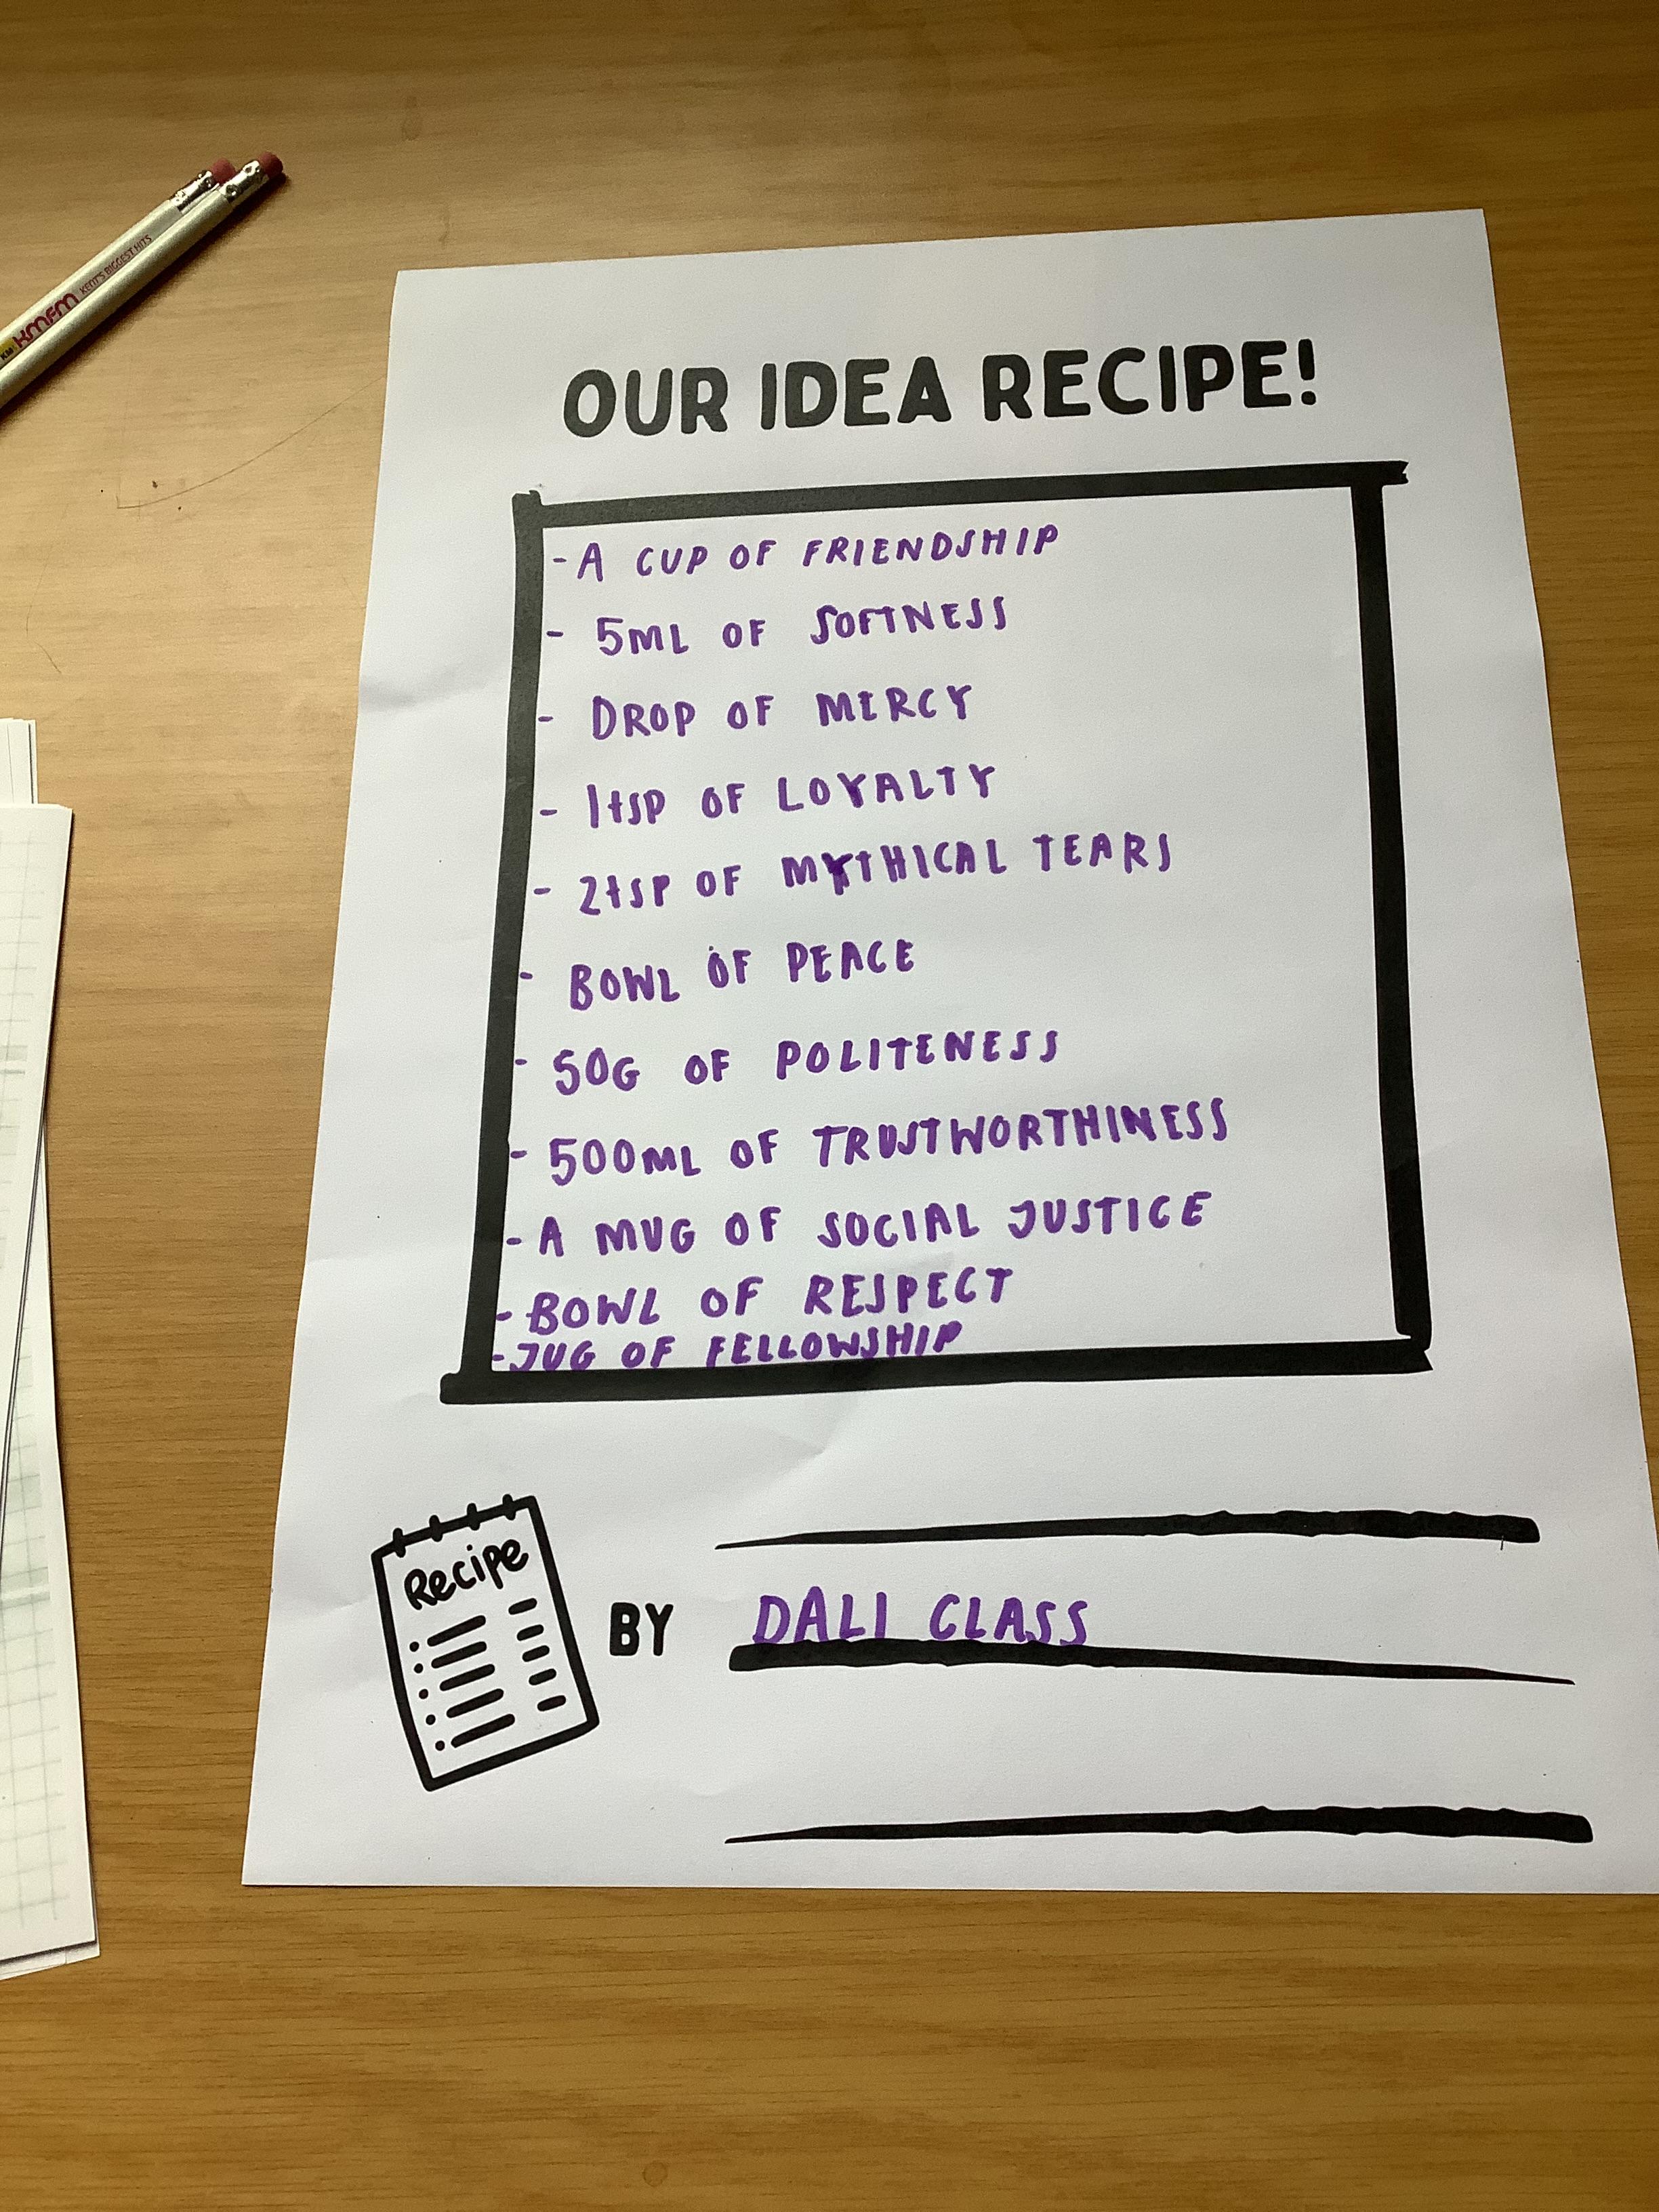 KM kmfm KENT'S BIGGEST HITS
OUR IDEA RECIPE!
- A CUP OF FRIENDSHIP
- 5ML OF SOFTNESS
- DROP OF MERCY
- 1tSP OF LOYALTY
- 2tSP OF MYTHICAL TEARS
- BOWL OF PEACE
- 50G OF POLITENESS
- 500ML OF TRUSTWORTHINESS
- A MUG OF SOCIAL JUSTICE
- BOWL OF RESPECT
- JUG OF FELLOWSHIP
Recipe
BY DALI CLASS